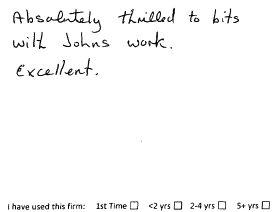 Absolutely thrilled to bits
with Johns work.
Excellent.
I have used this firm: 1st Time ☐ <2 yrs ☐ 2-4 yrs ☐ 5+ yrs ☐